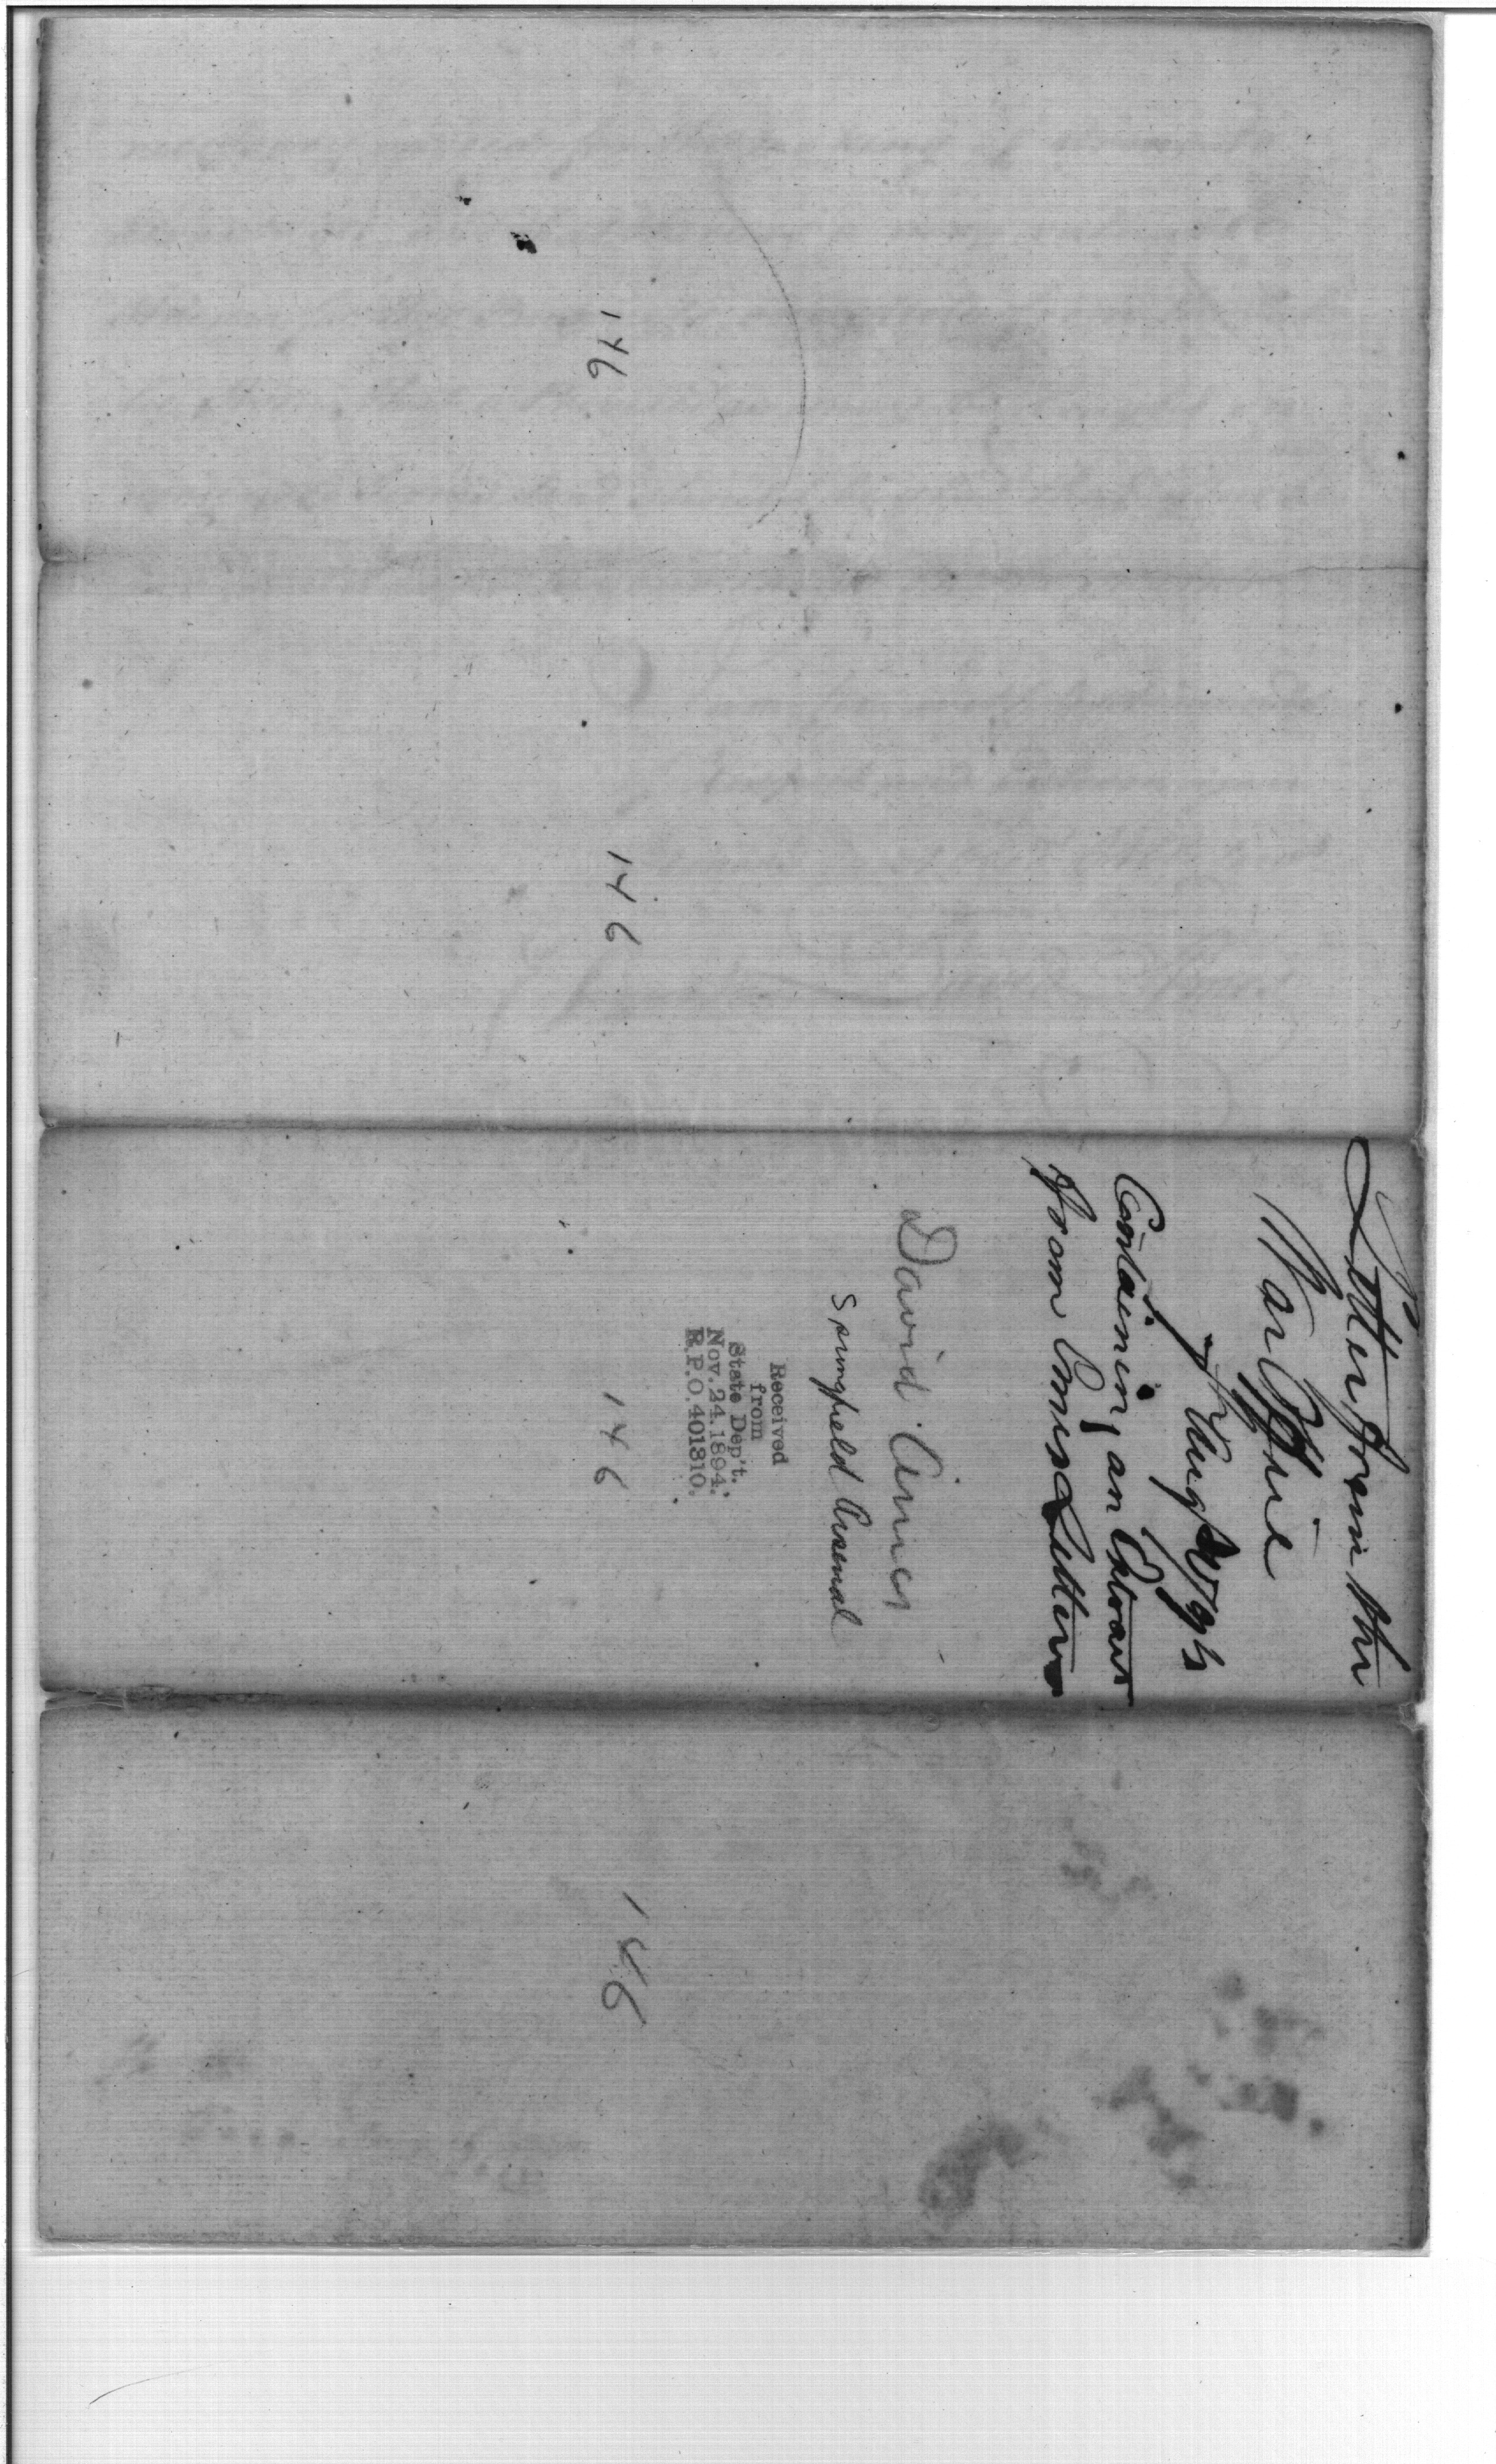 Letter from the
War Office
of Aug
Containing an Extract
from Ames Letter
David Ames
Springfield Arsenal
Received
from
State Dep't.
Nov. 24. 1894.
R.P.O. 401310.
146
146
146
146